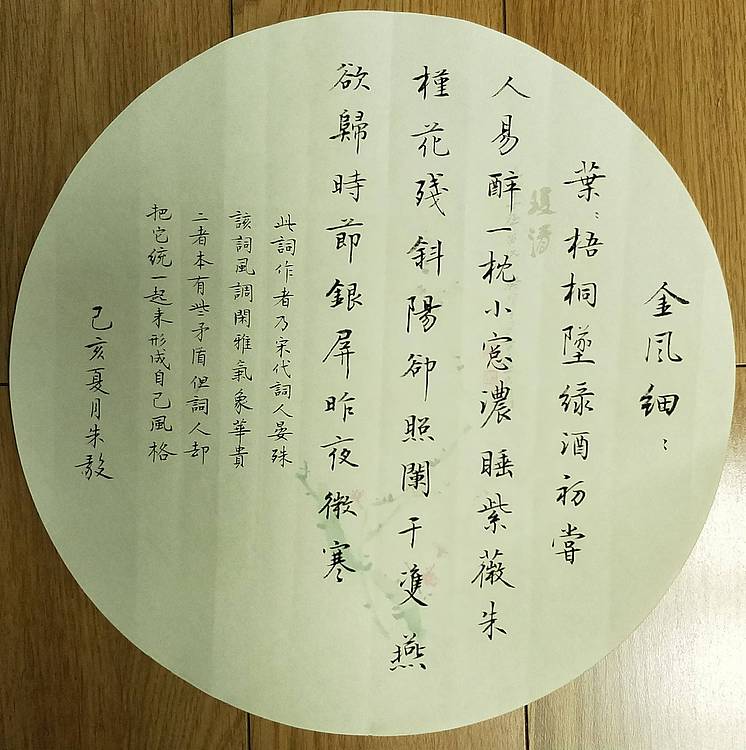 金风细〻
葉〻梧桐墜绿酒初嘗
人易醉一枕小窓濃睡紫薇朱
槿花残斜陽卻照闌干雙燕
欲歸時節銀屏昨夜微寒
此詞作者乃宋代詞人晏殊
該詞風調閑雅氣象華貴
二者本有些矛盾但詞人却
把它统一起来形成自己風格
己亥夏月朱毅